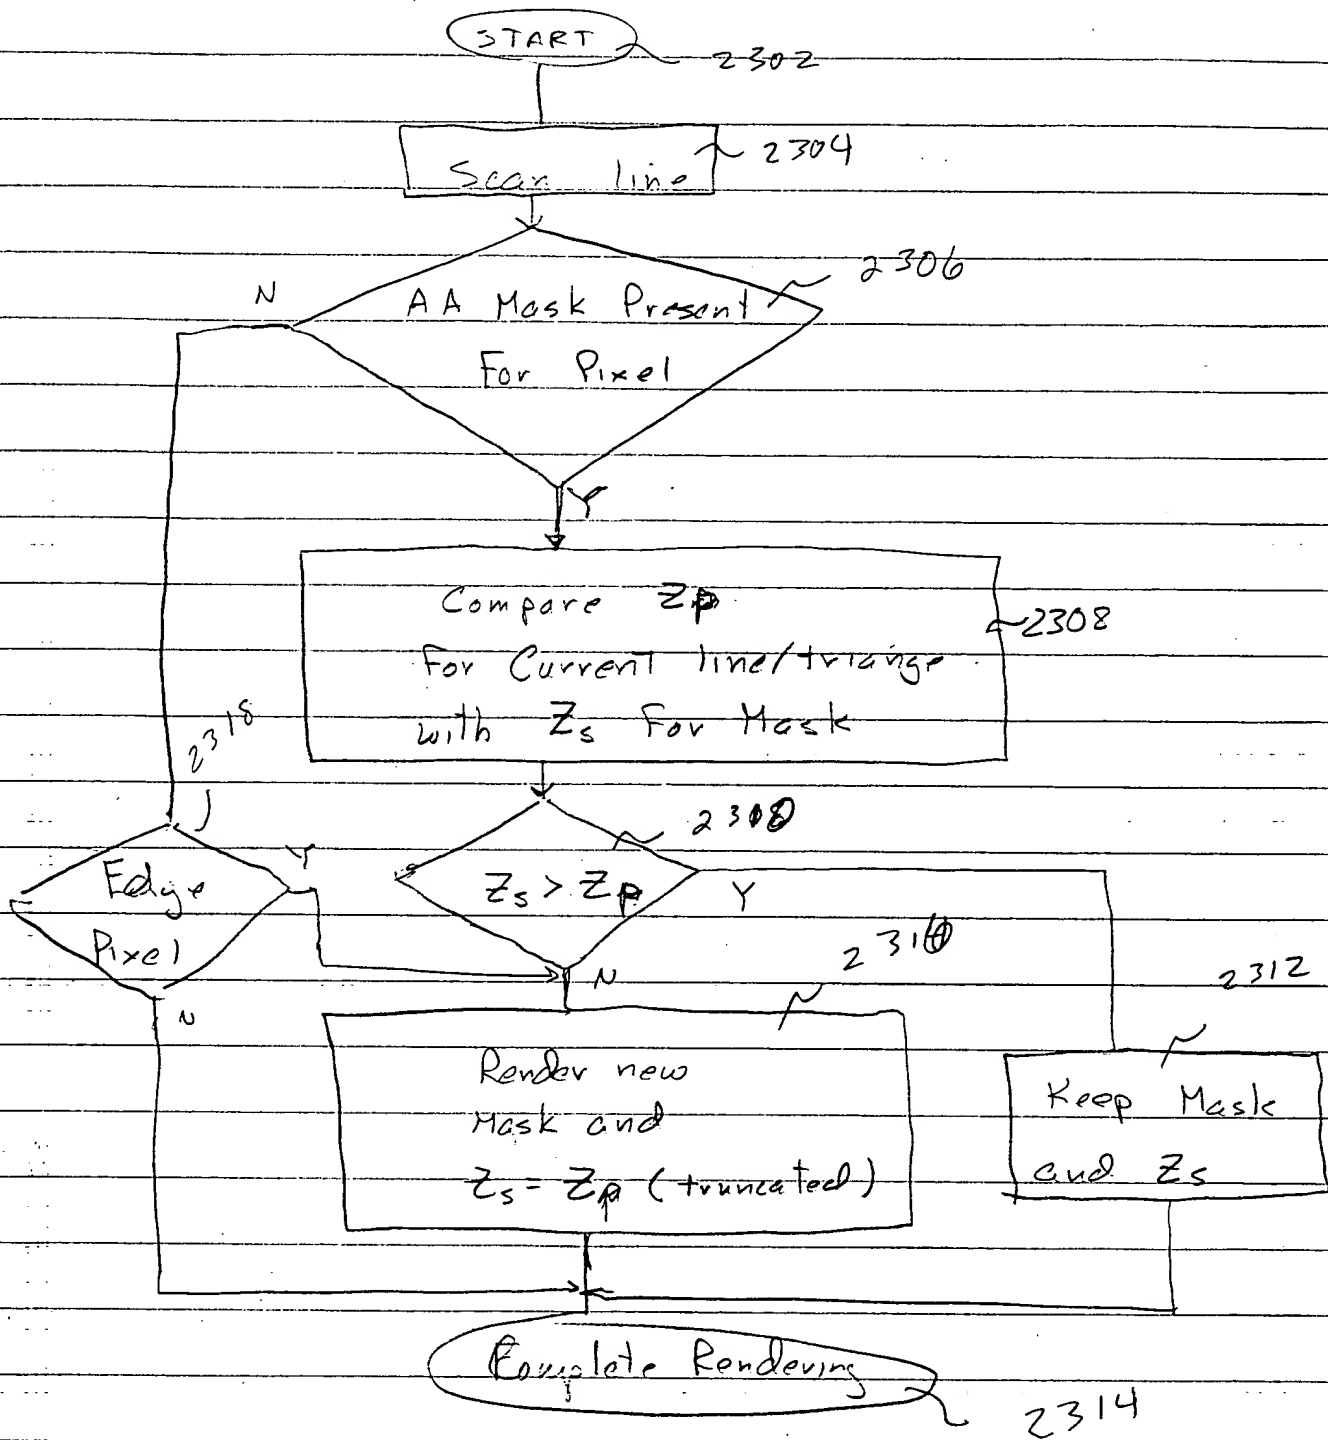 START
2302
Scan line
2304
2306
N
AA Mask Present
For Pixel
Y
Compare Zp
For Current line/triange
with Zs For Mask
2308
2318
Edge
Pixel
Y
N
Zs > Zp
Y
N
2312
Render new
Mask and
Zs = Zp (truncated)
Keep Mask
and Zs
Complete Rendering
2314